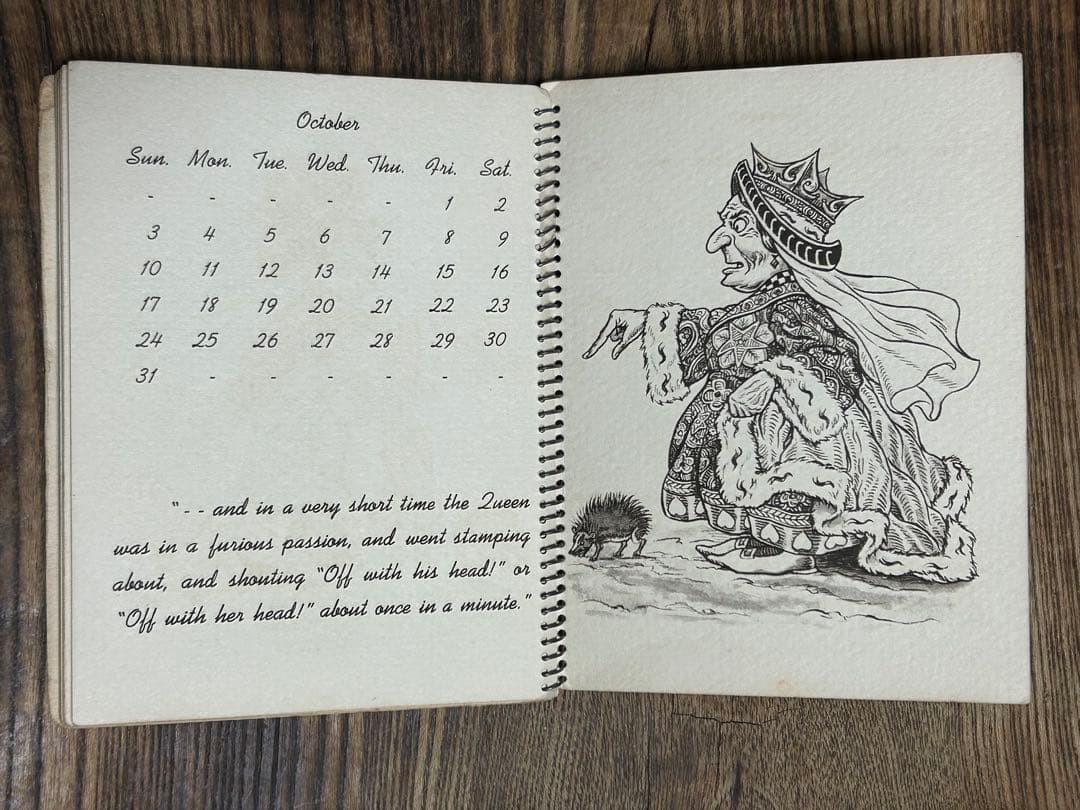 October
Sun. Mon. Tue. Wed. Thu. Fri. Sat.
- - - - - 1 2
3 4 5 6 7 8 9
10 11 12 13 14 15 16
17 18 19 20 21 22 23
24 25 26 27 28 29 30
31 - - - - - -
"-- and in a very short time the Queen
was in a furious passion, and went stamping
about, and shouting "Off with his head!" or
"Off with her head!" about once in a minute."